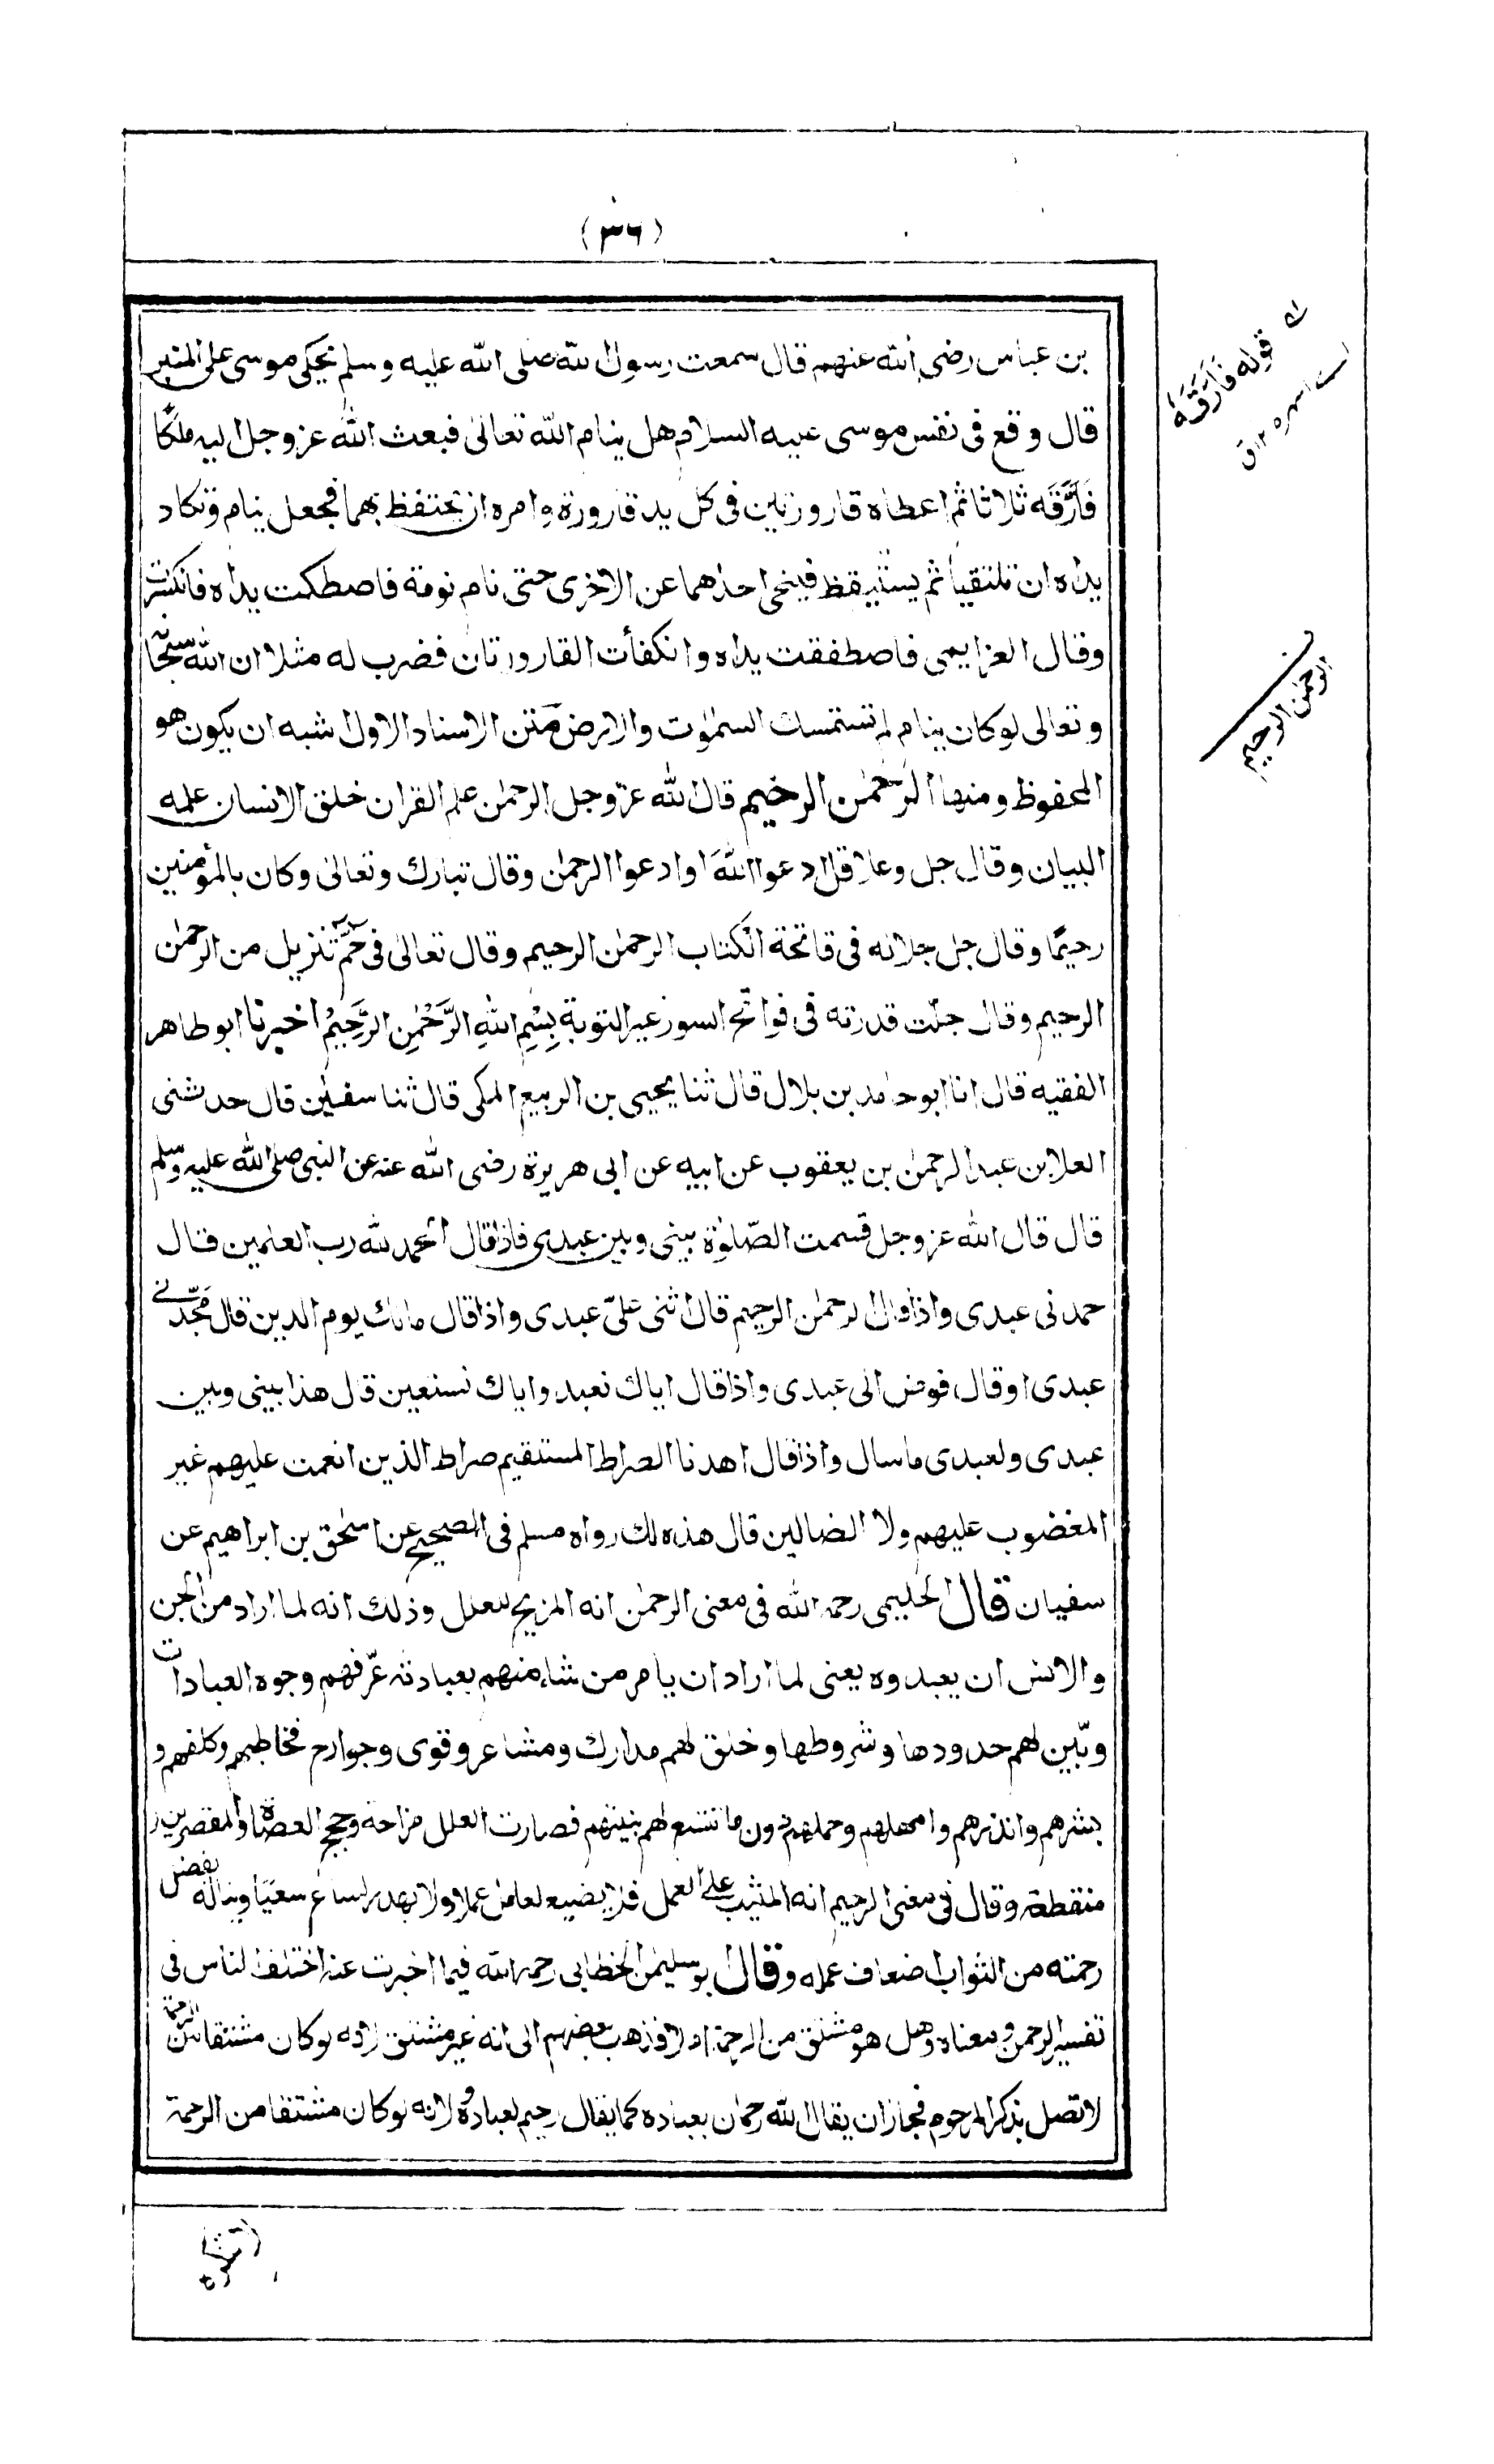 (٣٦)
بن عباس رضى الله عنهم قال سمعت رسول الله صلى الله عليه وسلم يحكى موسى على المنبر
قال وقع فى نفس موسى عليه السلام هل ينام الله تعالىٰ فبعث الله عز وجل اليه ملكًا
فَأَرَّقَه ثلاثا ثم اعطاه قارورتين فى كل يد قارورة وامره ان يحتفظ بهما فجعل ينام وتكاد
يداه ان تلتقيا ثم يستيقظ فينحى احداهما عن الاخرى حتى نام نومة فاصطكت يداه فانكسرت
وقال العزايمى فاصطفقت يداه وانكفأت القارورتان فضرب له مثلا ان الله سبحانه
وتعالى لو كان ينام لم تستمسك السمٰوٰت والارض متن الاسناد الاول اشبه ان يكون هو
المحفوظ ومنها الرَّحمٰن الرحيم قال الله عزّ وجل الرحمٰن علم القران خلق الانسان علمه
البيان وقال جل وعلا قل ادعوا اللهَ او ادعوا الرحمٰن وقال تبارك وتعالىٰ وكان بالمؤمنين
رحيمًا وقال جل جلاله فى فاتحة الكتاب الرحمٰن الرحيم وقال تعالىٰ فى حٰمّٓ تنزيل من الرحمٰن
الرحيم وقال جلّت قدرته فى فواتح السور غير التوبة بِسْمِ اللهِ الرَّحْمٰنِ الرَّحِيْمِ اخبرنا ابو طاهر
الفقيه قال انا ابو حامد بن بلال قال ثنا يحيى بن الربيع المكى قال ثنا سفيٰن قال حدثنى
العلا بن عبد الرحمٰن بن يعقوب عن ابيه عن ابى هريرة رضى الله عنه عن النبى صلى الله عليه وسلم
قال قال الله عز وجل قسمت الصّلوٰة بينى وبين عبدى فاذا قال الحمد لله رب العٰلمين قال
حمدنى عبدى واذا قال الرحمٰن الرحيم قال اثنى علىّ عبدى واذا قال مالك يوم الدين قال مَجّدنى
عبدى او قال فوض الى عبدى واذا قال اياك نعبد واياك نستعين قال هذا بينى وبين
عبدى ولعبدى ما سال واذا قال اهدنا الصراط المستقيم صراط الذين انعمت عليهم غير
المغضوب عليهم ولا الضالين قال هذه لك رواه مسلم فى الصحيح عن اسحٰق بن ابراهيم عن
سفيان قال الحليمى رحمه الله فى معنى الرحمٰن انه المزيح للعلل وذلك انه لما اراد من الجن
والانس ان يعبدوه يعنى لما اراد ان يامر من شاء منهم بعبادته عرّفهم وجوه العبادات
وبيّن لهم حدودها وشروطها وخلق لهم مدارك ومشاعر وقوى وجوارح فخاطبهم وكلفهم و
بشرهم وانذرهم وامهلهم وحملهم دون ما تتسع لهم بنيتهم فصارت العلل مزاحة وحجج العصاة والمقصرين
منقطعة وقال فى معنى الرحيم انه المثيب على العمل فلا يضيع لعامل عملا ولا يهدر لساع سعيًا وينيله بفضل
رحمته من الثواب اضعاف عمله وقال ابو سليمٰن الخطابى رحمه الله فيما اخبرت عنه اختلف الناس فى
تفسير الرحمٰن ومعناه وهل هو مشتق من الرحمة ام لا فذهب بعضهم الى انه غير مشتق لانه لو كان مشتقا من الرحمة
لاتصل بذكر المرحوم فجاز ان يقال الله رحمٰن بعباده كما يقال رحيم بعباده ولانه لو كان مشتقا من الرحمة
قوله فَأَرَّقَهُ
اى اسهره ١٢ ق
الرحمٰن الرحيم